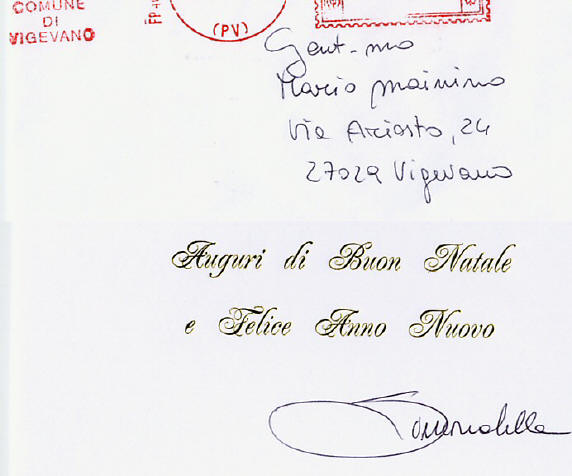 COMUNE
DI
VIGEVANO
(PV)
Gent-mo
Mario Mainino
Via Ariosto, 24
27029 Vigevano
Auguri di Buon Natale
e Felice Anno Nuovo